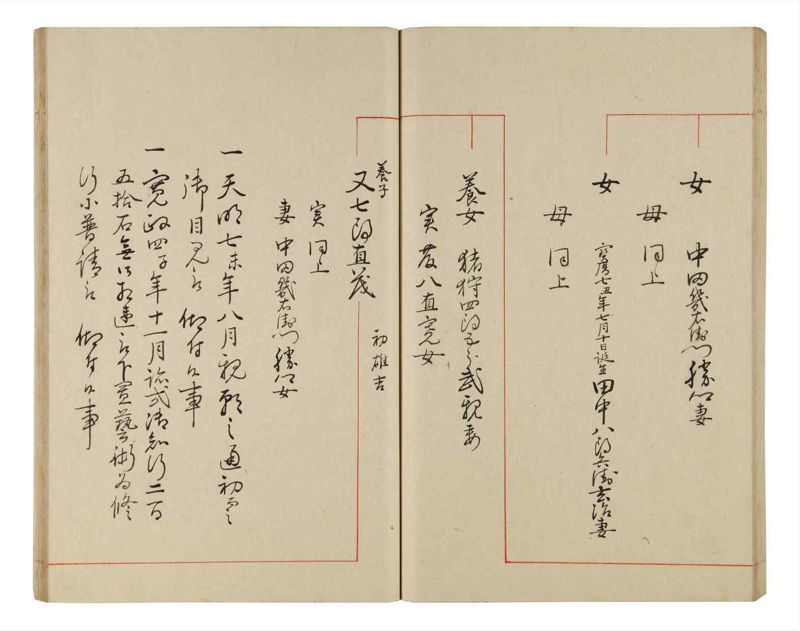 女 中田幾右衛門勝以妻
母 同上
女 宝暦七丑年七月十日誕生 田中八郎兵衛玄治妻
母 同上
養女 猪狩四郎五郎武親妻
実 友八直寛女
養子
又七郎直茂 初雄吉
実 同上
妻 中田幾右衛門勝以女
一 天明七未年八月親願之通初而
御目見被 仰付候事
一 寛政四子年十一月跡式御知行二百
五拾石無御相違被下置藝術為修
行小普請被 仰付候事